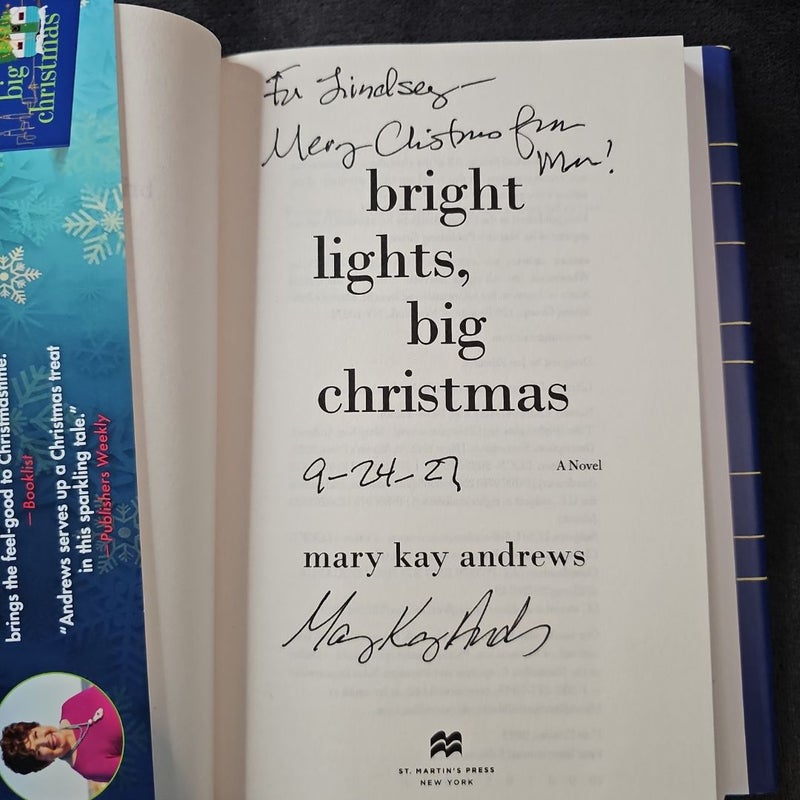 big
christmas
brings the feel-good to Christmastime.
— Booklist
"Andrews serves up a Christmas treat
in this sparkling tale."
— Publishers Weekly
For Lindsey—
Merry Christmas from
Mom!
bright
lights,
big
christmas
9-24-23
A Novel
mary kay andrews
Mary Kay Andrews
ST. MARTIN'S PRESS
NEW YORK